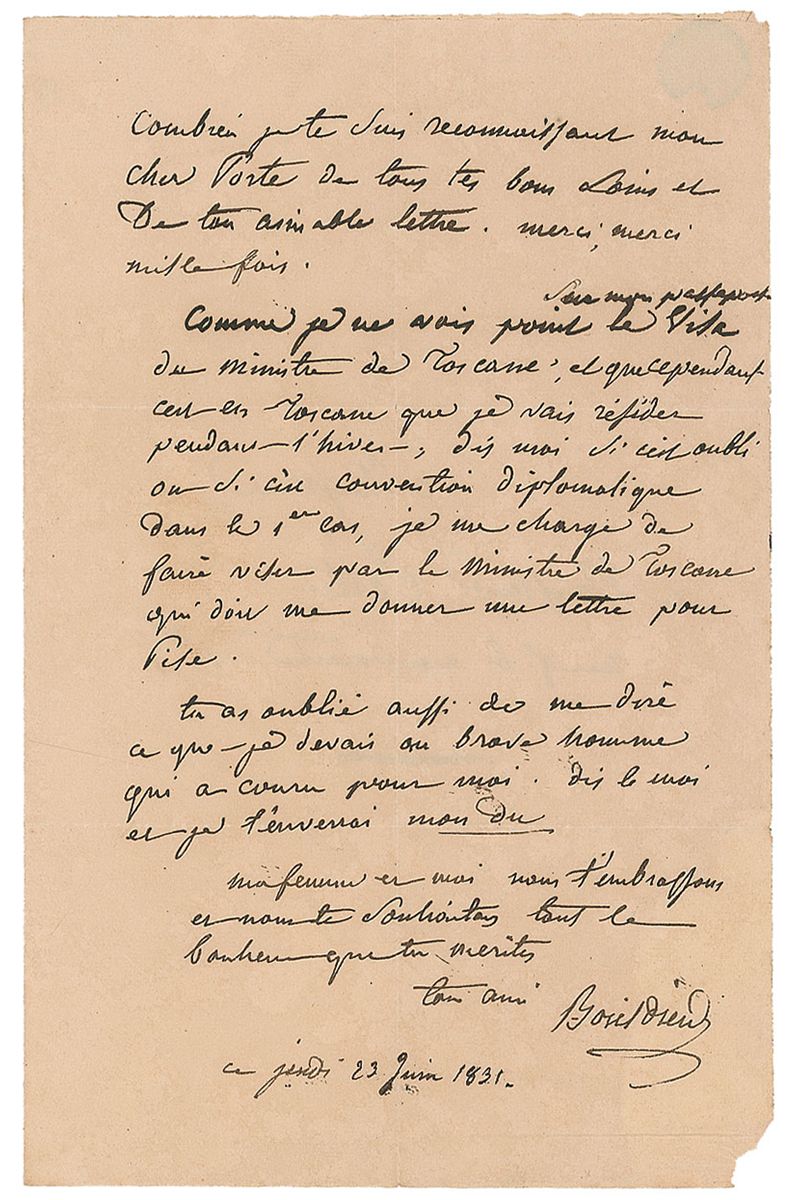 Combien je te suis reconnaissant mon
cher Porte de tous tes bons soins et
De ton aimable lettre. merci, merci
mille fois.
sur mon passeport
Comme je ne vois point le Visa
du Ministre de Toscane, et que cependant
c'est en Toscane que je vais résider
pendant l'hiver, dis moi si c'est oubli
ou si c'est convention diplomatique
Dans le 1er cas, je me charge de
faire viser par le Ministre de Toscane
qui doit me donner une lettre pour
Pise.
tu as oublié aussi de me dire
ce que je devais au brave homme
qui a couru pour moi. dis le moi
et je t'enverrai mon du
ma femme et moi nous t'embrassons
et nous te souhaitons tout le
bonheur que tu merites
ton ami
Boieldieu
ce jeudi 23 Juin 1831.